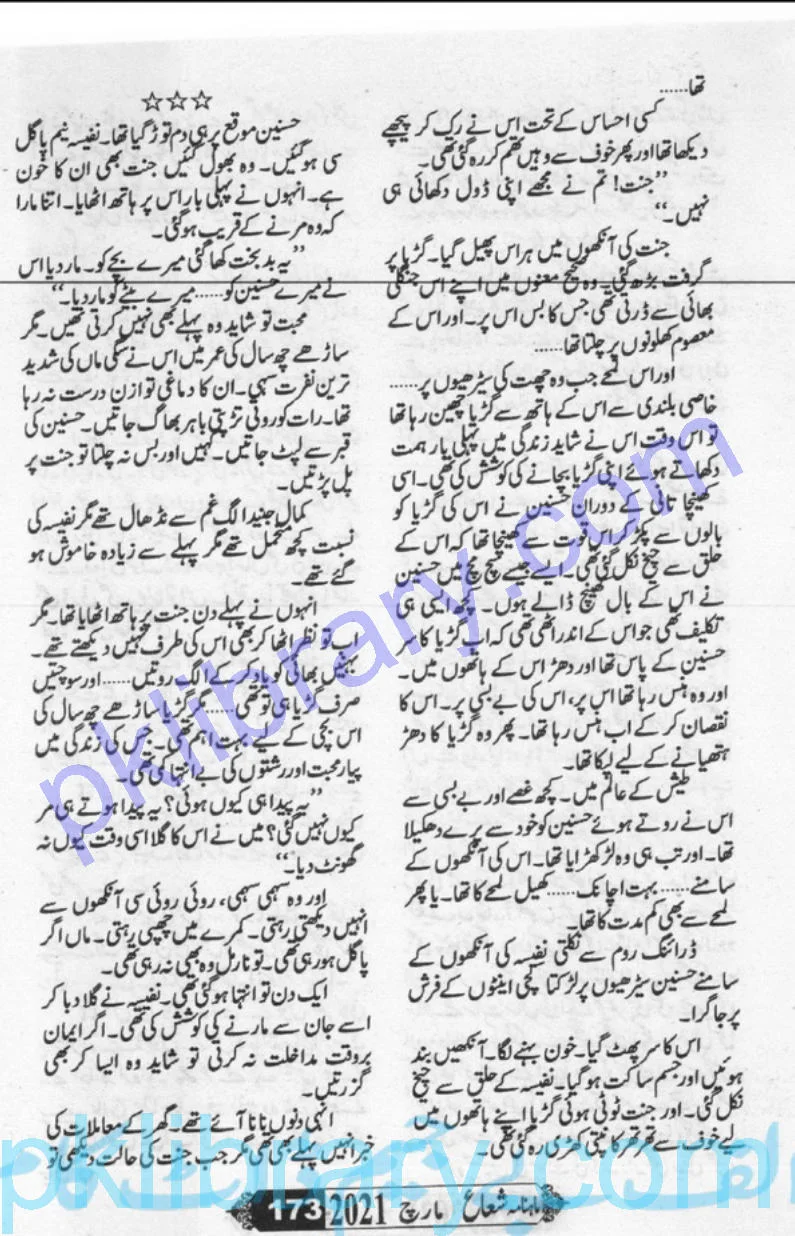 تھا......
کسی احساس کے تحت اس نے رک کر پیچھے
دیکھا تھا اور پھر خوف سے وہیں تھم کر رہ گئی تھی۔
”جنت! تم نے مجھے اپنی ڈول دکھائی ہی
نہیں۔“
جنت کی آنکھوں میں ہراس پھیل گیا۔ گڑیا پر
گرفت بڑھ گئی۔ وہ صحیح معنوں میں اپنے اس جنگلی
بھائی سے ڈرتی تھی جس کا بس اس پر۔ اور اس کے
معصوم کھلونوں پر چلتا تھا......
اور اس لمحے جب وہ چھت کی سیڑھیوں پر......
خاصی بلندی سے اس کے ہاتھ سے گڑیا چھین رہا تھا
تو اس وقت اس نے شاید زندگی میں پہلی بار ہمت
دکھاتے ہوئے اپنی گڑیا بچانے کی کوشش کی تھی۔ اسی
کھینچا تانی کے دوران حسنین نے اس کی گڑیا کو
بالوں سے پکڑ کر اس قوت سے کھینچا تھا کہ اس کے
حلق سے چیخ نکل گئی تھی۔ ایسے جیسے سچ مچ میں حسنین
نے اس کے بال کھینچ ڈالے ہوں۔ کچھ ایسی ہی
تکلیف تھی جو اس کے اندر اٹھی تھی کہ اب گڑیا کا سر
حسنین کے پاس تھا اور دھڑ اس کے ہاتھوں میں۔
اور وہ ہنس رہا تھا اس پر، اس کی بے بسی پر۔ اس کا
نقصان کر کے اب ہنس رہا تھا۔ پھر وہ گڑیا کا دھڑ
ہتھیانے کے لیے لپکا تھا۔
طیش کے عالم میں۔ کچھ غصے اور بے بسی سے
اس نے روتے ہوئے حسنین کو خود سے پرے دھکیلا
تھا۔ اور تب ہی وہ لڑکھڑایا تھا۔ اس کی آنکھوں کے
سامنے...... بہت اچانک...... کھیل لمحے کا تھا۔ یا پھر
لمحے سے بھی کم مدت کا تھا۔
ڈرائنگ روم سے نکلتی نفیسہ کی آنکھوں کے
سامنے حسنین سیڑھیوں پر لڑکتا کچی اینٹوں کے فرش
پر جا گرا۔
اس کا سر پھٹ گیا۔ خون بہنے لگا۔ آنکھیں بند
ہوئیں اور جسم ساکت ہو گیا۔ نفیسہ کے حلق سے چیخ
نکل گئی۔ اور جنت ٹوٹی ہوئی گڑیا اپنے ہاتھوں میں
لیے خوف سے تھر تھر کانپتی کھڑی رہ گئی تھی۔
☆☆☆
حسنین موقع پر ہی دم توڑ گیا تھا۔ نفیسہ نیم پاگل
سی ہو گئیں۔ وہ بھول گئیں جنت بھی ان کا خون
ہے۔ انہوں نے پہلی بار اس پر ہاتھ اٹھایا۔ اتنا مارا
کہ وہ مرنے کے قریب ہو گئی۔
”یہ بد بخت کھا گئی میرے بچے کو۔ مار دیا اس
نے میرے حسنین کو...... میرے بیٹے کو مار دیا۔“
محبت تو شاید وہ پہلے بھی نہیں کرتی تھیں۔ مگر
ساڑھے چھ سال کی عمر میں اس نے سگی ماں کی شدید
ترین نفرت سہی۔ ان کا دماغی توازن درست نہ رہا
تھا۔ رات کو روتی تڑپتی باہر بھاگ جاتیں۔ حسنین کی
قبر سے لپٹ جاتیں۔ کہیں اور بس نہ چلتا تو جنت پر
پل پڑتیں۔
کمال جنید الگ غم سے نڈھال تھے مگر نفیسہ کی
نسبت کچھ متحمل تھے مگر پہلے سے زیادہ خاموش ہو
گئے تھے۔
انہوں نے پہلے دن جنت پر ہاتھ اٹھایا تھا۔ مگر
اب تو نظر اٹھا کر بھی اس کی طرف نہیں دیکھتے تھے۔
بہنیں بھائی کو یاد کر کے الگ روتیں...... اور سوچتیں
صرف گڑیا ہی تو تھی...... مگر گڑیا ساڑھے چھ سال کی
اس بچی کے لیے بہت اہم تھی۔ جس کی زندگی میں
پیار محبت اور رشتوں کی بے انتہا کمی تھی۔
”یہ پیدا ہی کیوں ہوئی؟ یہ پیدا ہوتے ہی مر
کیوں نہیں گئی؟ میں نے اس کا گلا اسی وقت کیوں نہ
گھونٹ دیا۔“
اور وہ سہمی سہمی، روئی روئی سی آنکھوں سے
انہیں دیکھتی رہتی۔ کمرے میں چھپی رہتی۔ ماں اگر
پاگل ہو رہی تھی۔ تو نارمل وہ بھی نہ رہی تھی۔
ایک دن تو انتہا ہو گئی تھی۔ نفیسہ نے گلا دبا کر
اسے جان سے مارنے کی کوشش کی تھی۔ اگر ایمان
بروقت مداخلت نہ کرتی تو شاید وہ ایسا کر بھی
گزرتیں۔
انہی دنوں نانا آئے تھے۔ گھر کے معاملات کی
خبر انہیں پہلے بھی تھی مگر جب جنت کی حالت دیکھی تو
ماہنامہ شعاع مارچ 2021 173
pklibrary.com
pklibrary.com
pklibrary.com